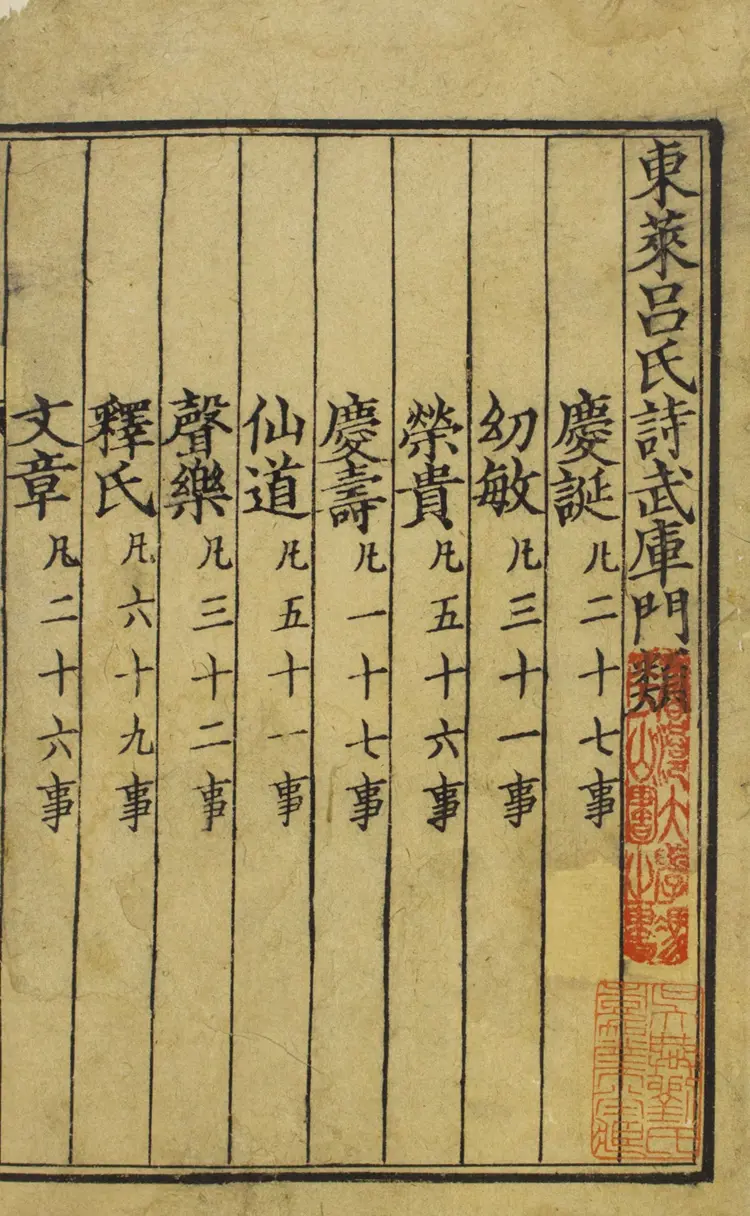 東萊呂氏詩武庫門類
慶誕凡二十七事
幼敏凡三十一事
榮貴凡五十六事
慶壽凡一十七事
仙道凡五十一事
聲樂凡三十二事
釋氏凡六十九事
文章凡二十六事